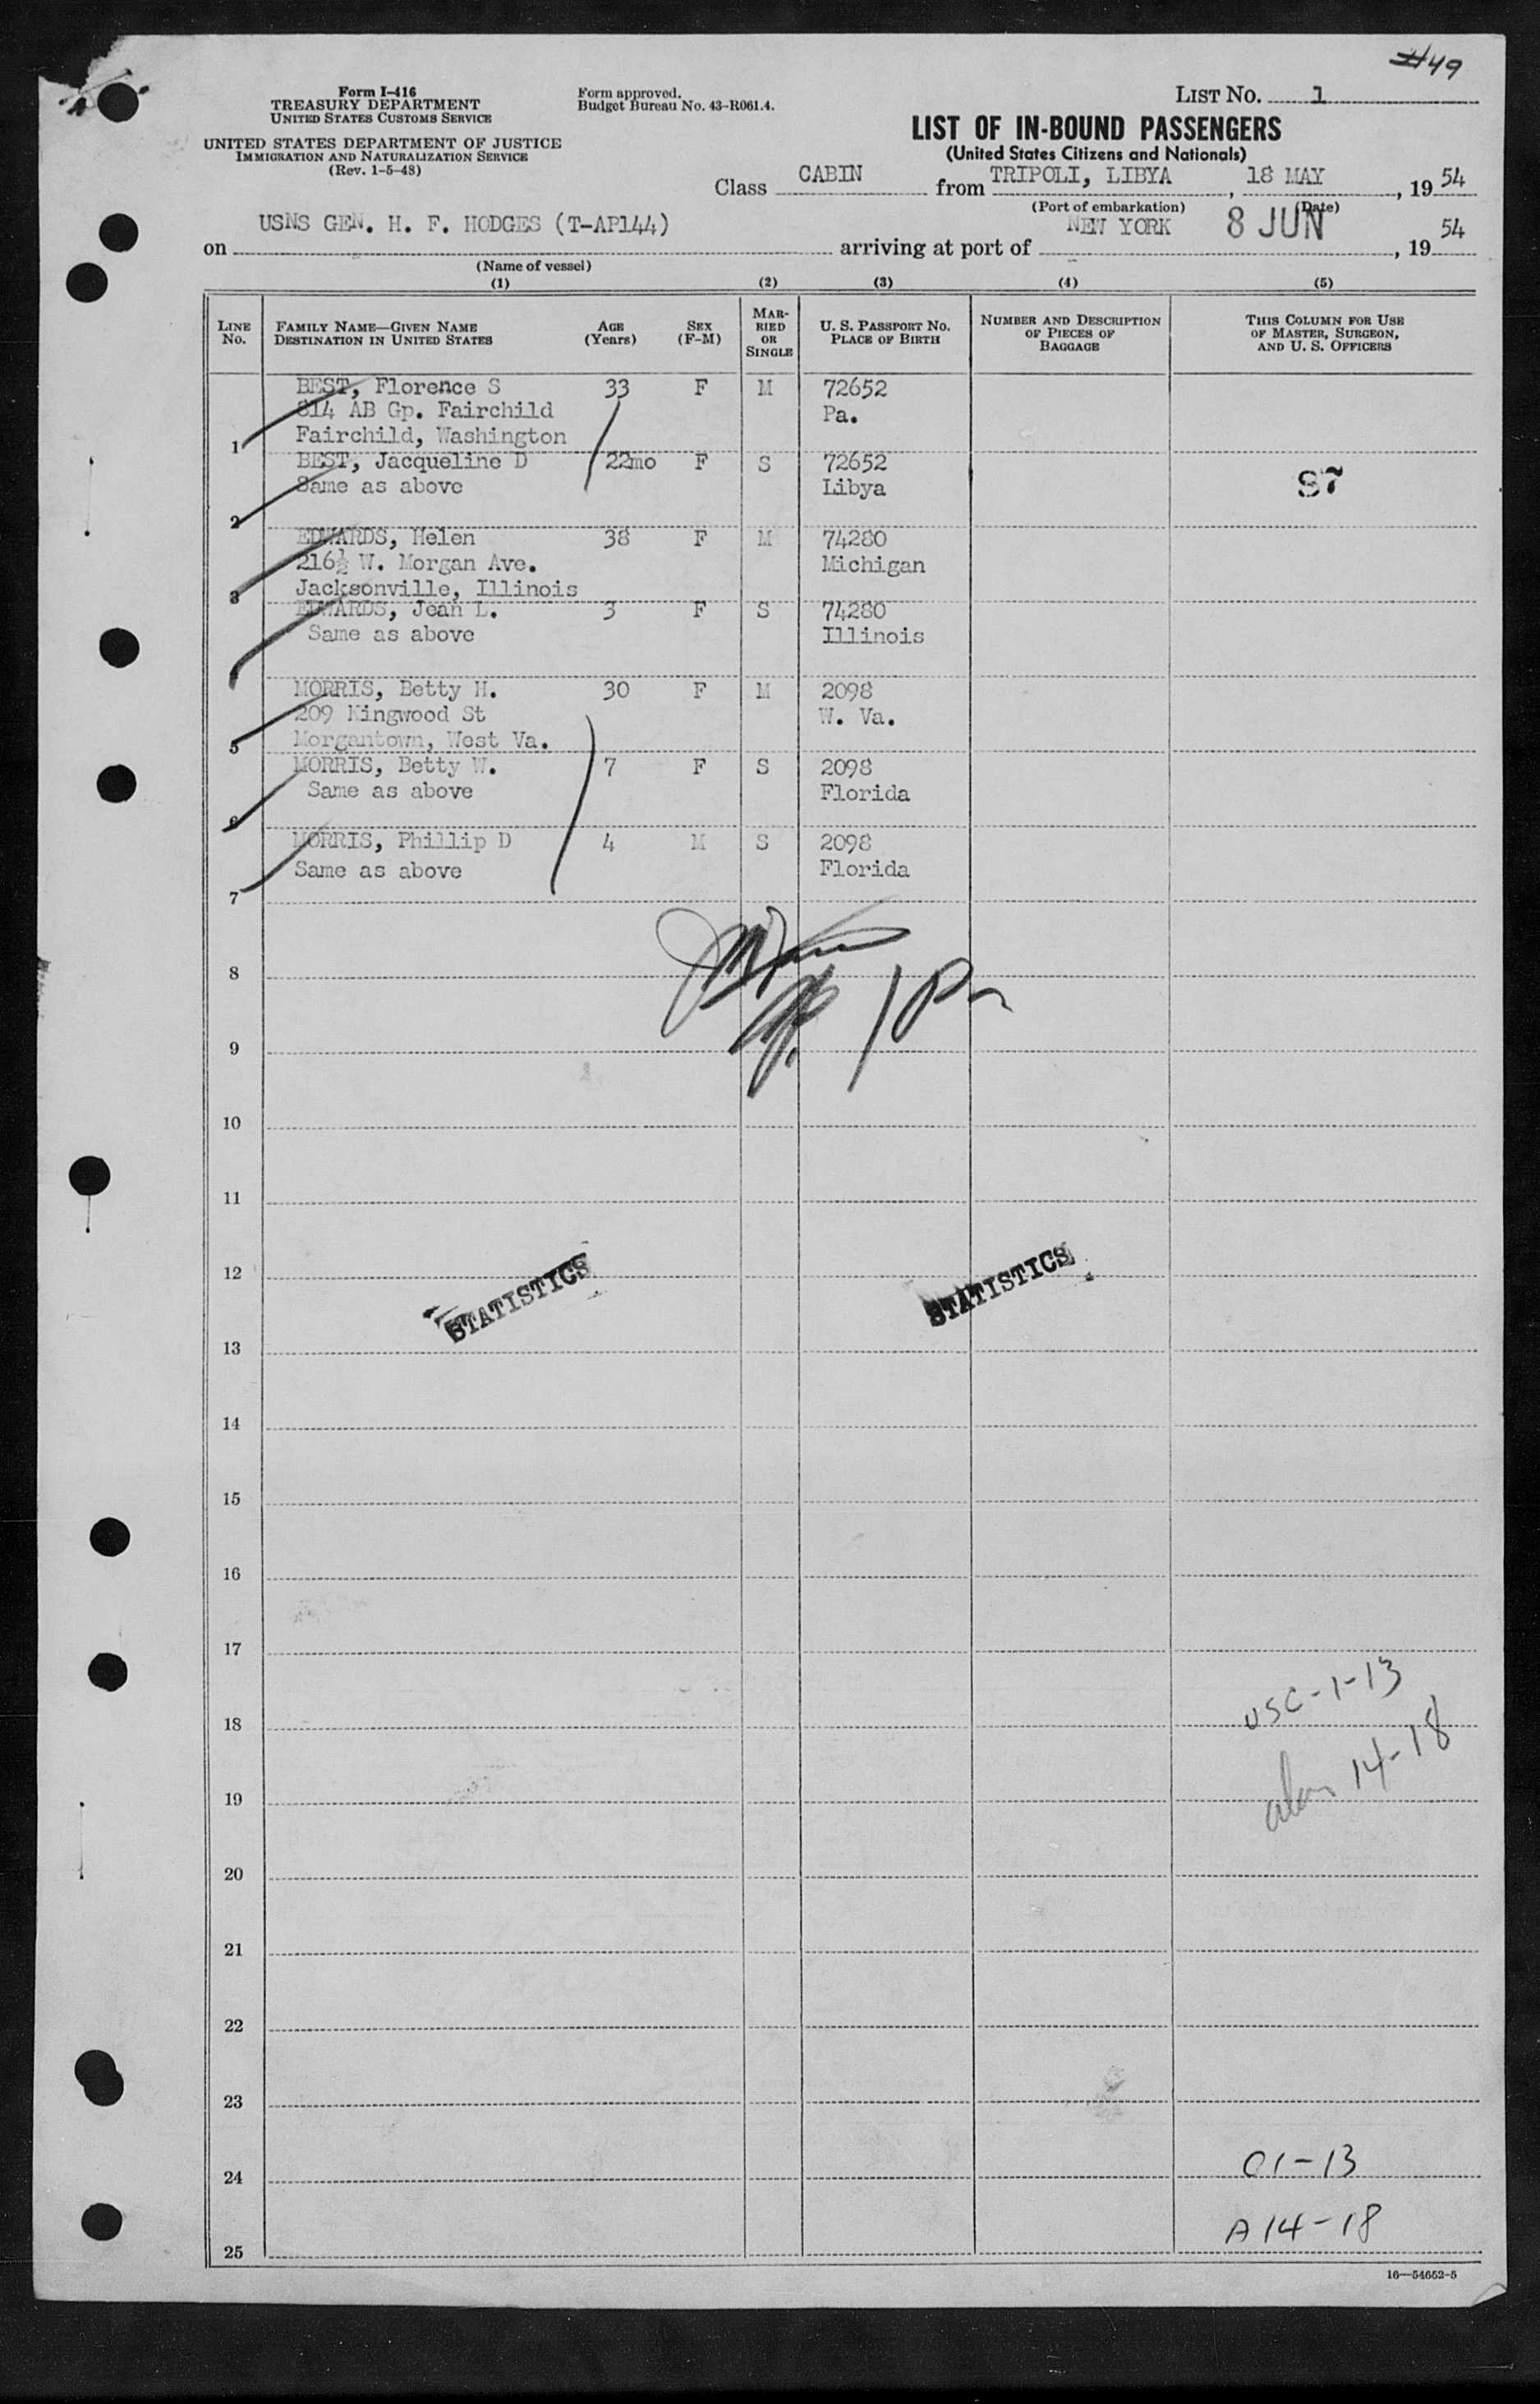 #49
Form I-416
TREASURY DEPARTMENT
UNITED STATES CUSTOMS SERVICE
UNITED STATES DEPARTMENT OF JUSTICE
IMMIGRATION AND NATURALIZATION SERVICE
(Rev. 1-5-48)
Form approved.
Budget Bureau No. 43-R061.4.
LIST NO. 1
LIST OF IN-BOUND PASSENGERS
(United States Citizens and Nationals)
Class CABIN from TRIPOLI, LIBYA, 18 MAY, 1954
(Port of embarkation) (Date)
on USNS GEN. H. F. HODGES (T-AP144) arriving at port of NEW YORK 8 JUN, 1954
(Name of vessel)
(1) (2) (3) (4) (5)
LINE NO. FAMILY NAME—GIVEN NAME DESTINATION IN UNITED STATES AGE (Years) SEX (F-M) MARRIED OR SINGLE U. S. PASSPORT NO. PLACE OF BIRTH NUMBER AND DESCRIPTION OF PIECES OF BAGGAGE THIS COLUMN FOR USE OF MASTER, SURGEON, AND U. S. OFFICERS
BEST, Florence S 33 F M 72652
814 AB Gp. Fairchild Pa.
1 Fairchild, Washington
BEST, Jacqueline D 22mo F S 72652
Same as above Libya 87
2
EDWARDS, Helen 38 F M 74280
216½ W. Morgan Ave. Michigan
3 Jacksonville, Illinois
EDWARDS, Jean L. 3 F S 74280
Same as above Illinois
MORRIS, Betty H. 30 F M 2098
209 Kingwood St W. Va.
5 Morgantown, West Va.
MORRIS, Betty W. 7 F S 2098
Same as above Florida
6
MORRIS, Phillip D 4 M S 2098
Same as above Florida
7
8
9
10
11
12
STATISTICS STATISTICS
13
14
15
16
17
USC-1-13
18
14-18
19
20
21
22
23
01-13
24
A 14-18
25
16—54652-5